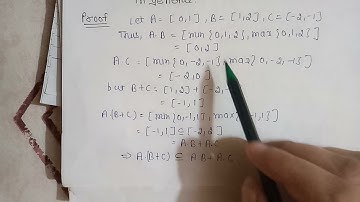 in general.
Proof Let A = [0,1], B = [1,2], C = [-2,-1]
Thus, A.B = [min{0,1,2}, max{0,1,2}]
= [0,2]
A.C = [min{0,-2,-1}, max{0,-2,-1}]
= [-2,0]
but B+C = [1,2] + [-2,
= [-1,1]
A.(B+C) = [min{0,-1,1}, max -1,1}]
= [-1,1] ⊆ [-2,2]
= A.B + A.C
⇒ A.(B+C) ⊆ A.B + A.C